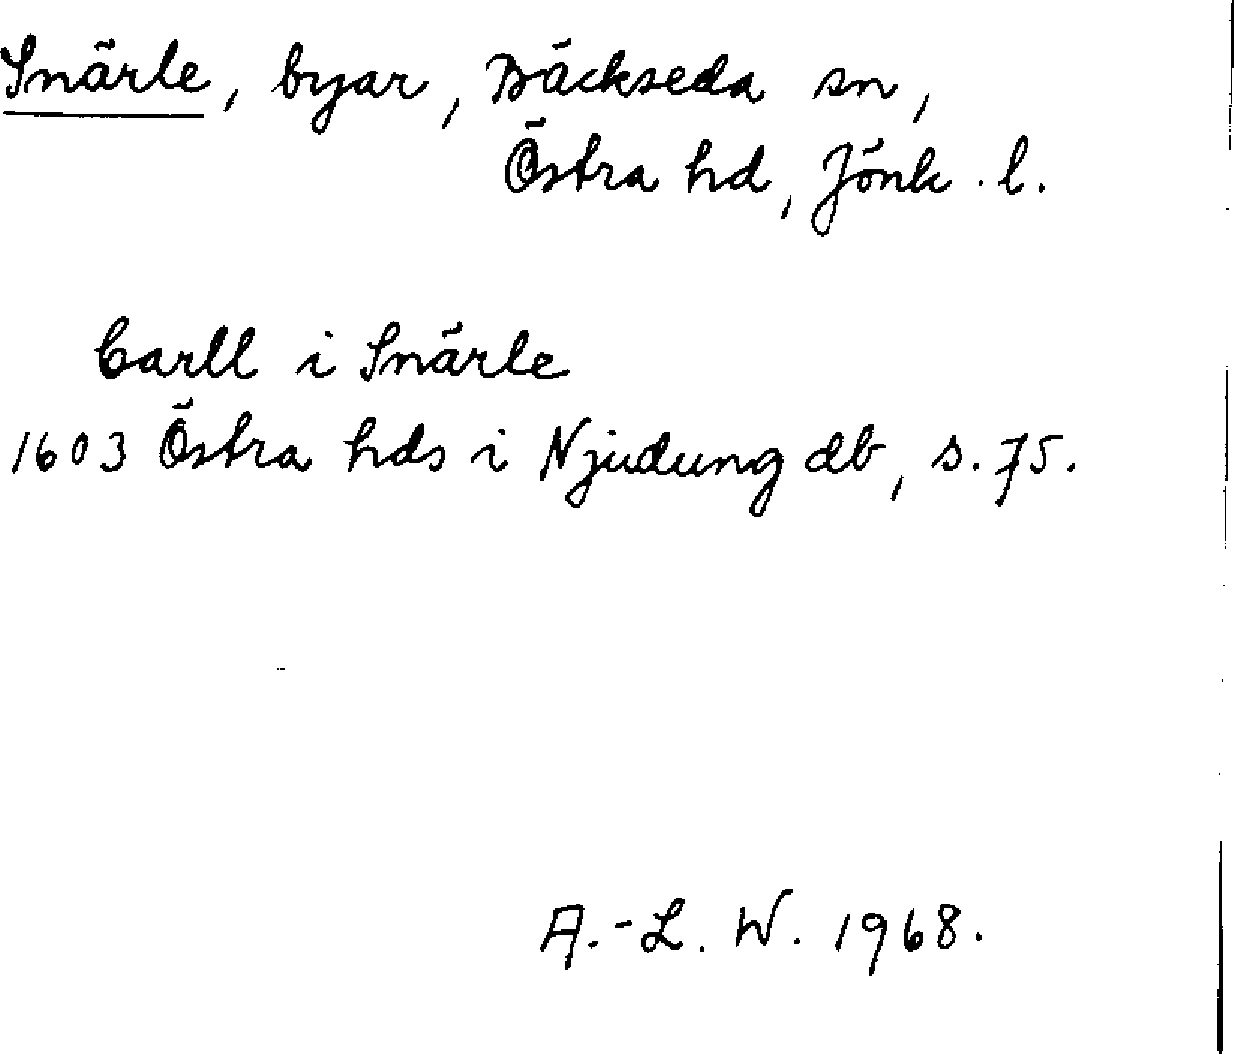 Snärle, byar, Bäckseda sn,
Östra hd, Jönk. l.
Carll i Snärle
1603 Östra hds i Njudung db, s. 75.
A.-L. W. 1968.